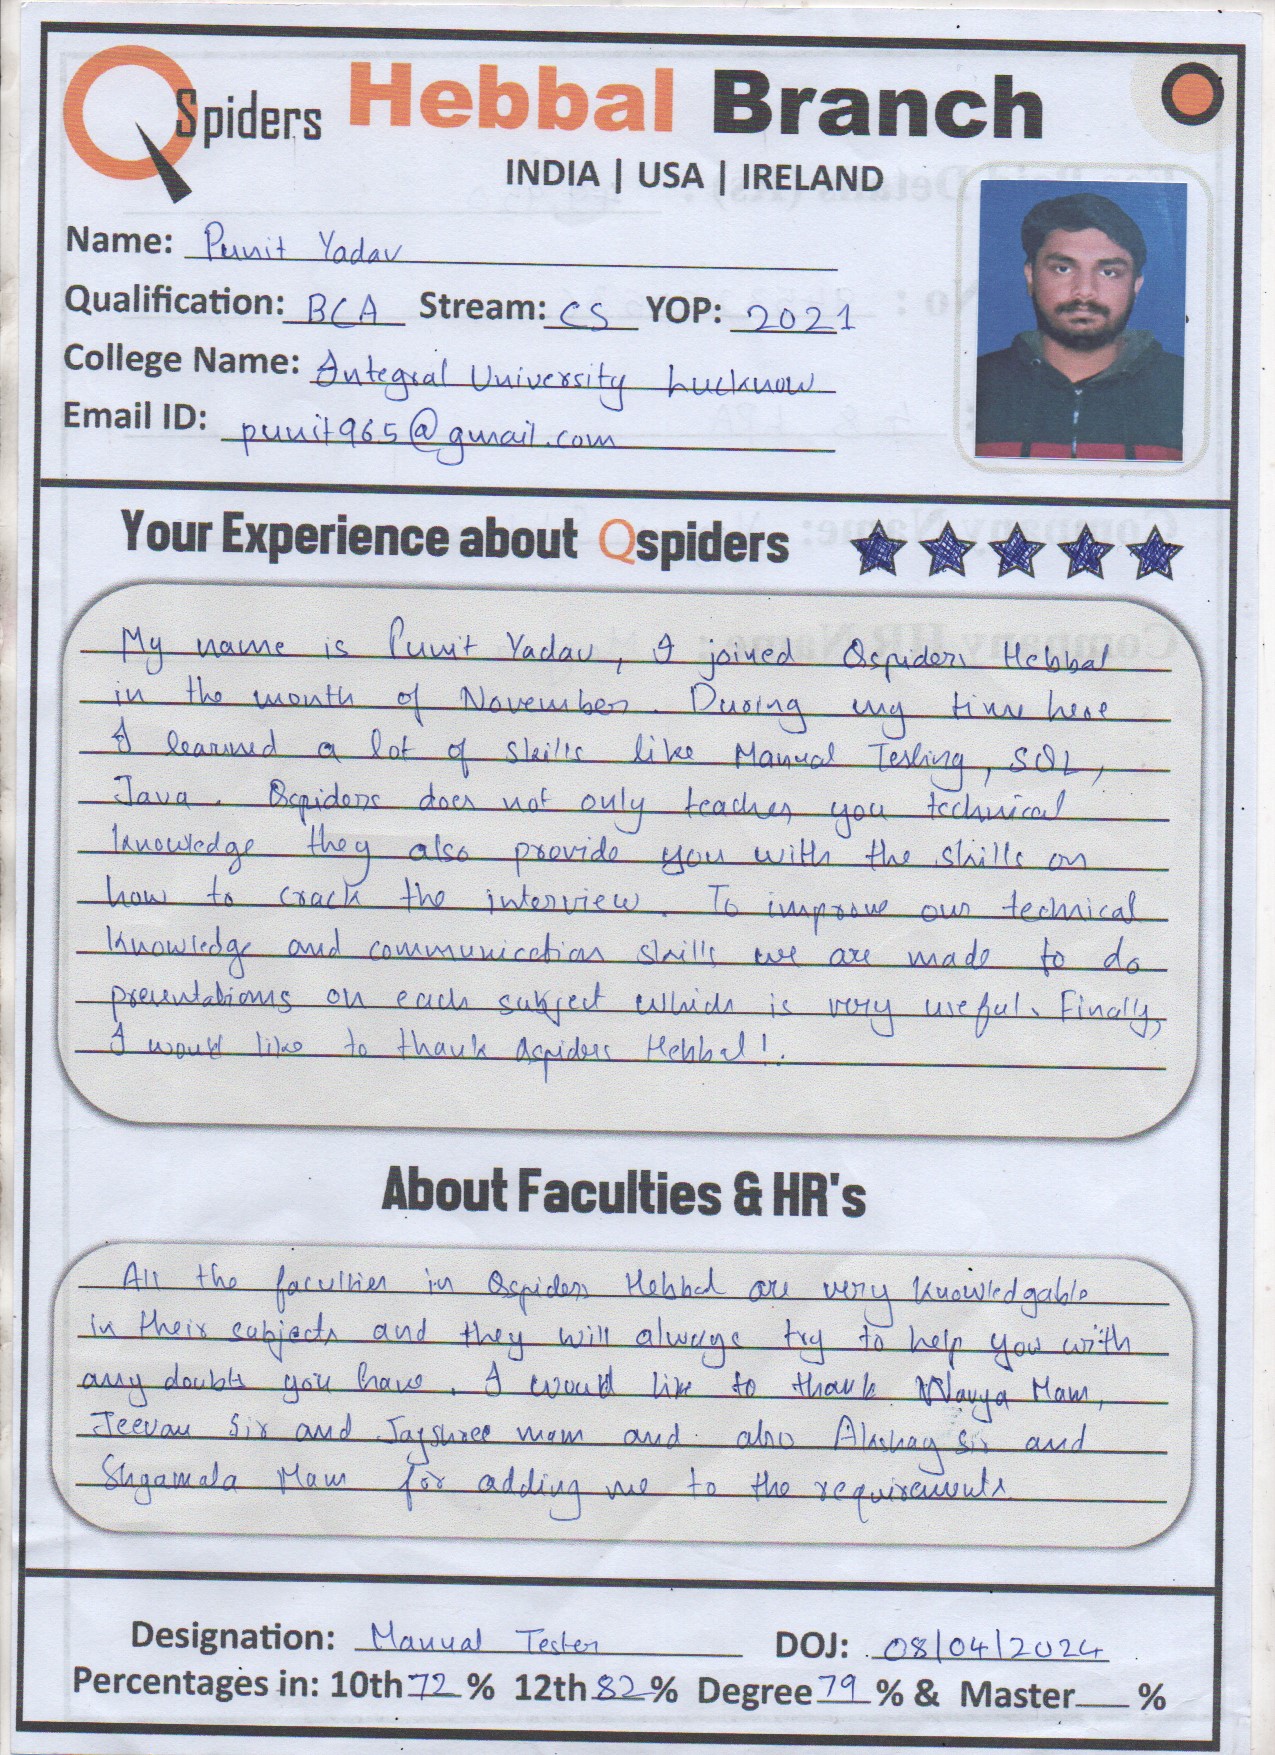 QSpiders Hebbal Branch
INDIA | USA | IRELAND
Name: Punit Yadav
Qualification: BCA Stream: CS YOP: 2021
College Name: Integral University Lucknow
Email ID: punit965@gmail.com
Your Experience about Qspiders
My name is Punit Yadav, I joined Qspiders Hebbal
in the month of November. During my time here
I learned a lot of skills like Manual Testing, SQL,
Java. Qspiders does not only teaches you technical
knowledge they also provide you with the skills on
how to crack the interview. To improve our technical
knowledge and communication skills we are made to do
presentations on each subject which is very useful. Finally,
I would like to thank Qspiders Hebbal!.
About Faculties & HR's
All the faculties in Qspiders Hebbal are very knowledgable
in their subjects and they will always try to help you with
any doubts you have. I would like to thank Mam,
Jeevan Sir and Jayshree mam and also Akshay Sir and
Shyamala Mam for adding me to the requirements
Designation: Manual Tester DOJ: 08/04/2024
Percentages in: 10th 72 % 12th 82 % Degree 79 % & Master %